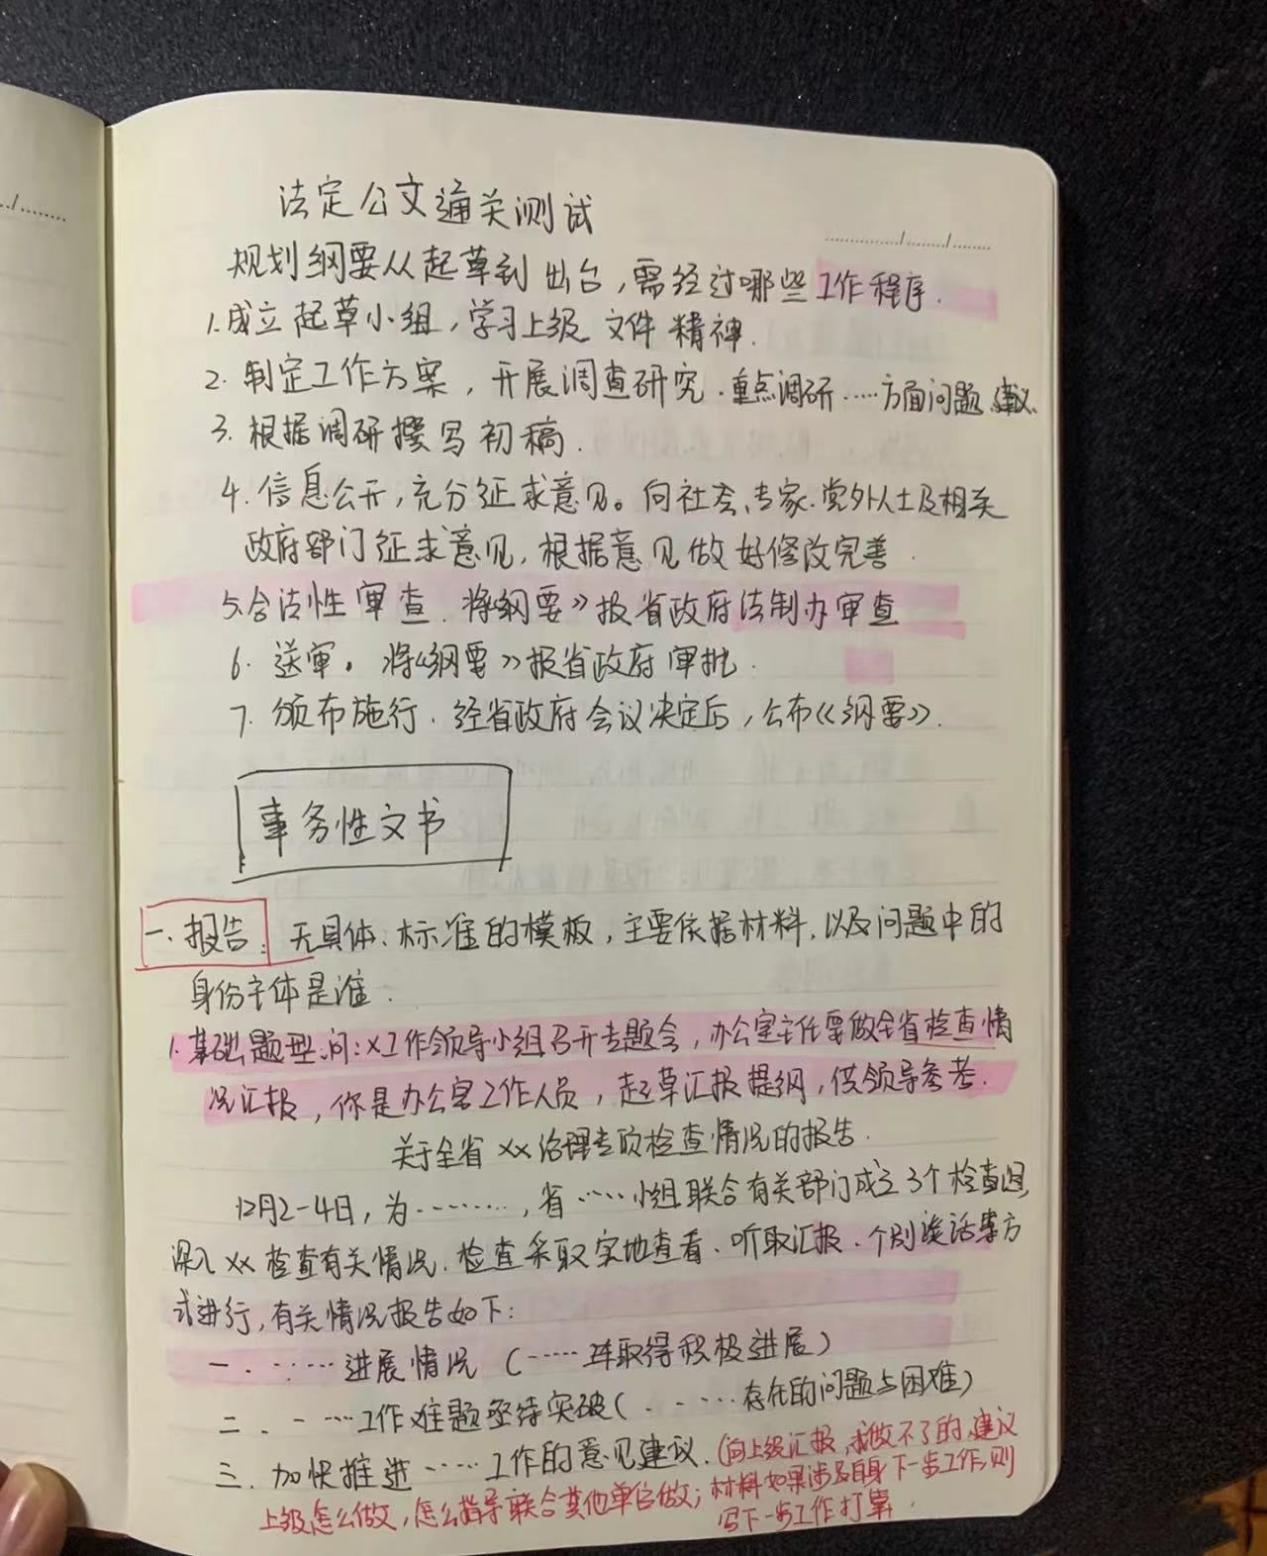 法定公文通关测试
规划纲要从起草到出台，需经过哪些工作程序．
1.成立起草小组，学习上级文件精神．
2.制定工作方案，开展调查研究．重点调研……方面问题、建议、
3.根据调研撰写初稿．
4.信息公开，充分征求意见。向社会、专家.党外人士及相关
政府部门征求意见，根据意见做好修改完善．
5.合法性审查．将纲要》报省政府法制办审查
6.送审。将《纲要》报省政府审批．
7.颁布施行．经省政府会议决定后，公布《纲要》．
事务性文书
一.报告：无具体、标准的模板，主要依据材料，以及问题中的
身份主体是谁．
1.基础题型.问:X工作领导小组召开专题会，办公室主任要做全省检查情
况汇报，你是办公室工作人员，起草汇报提纲，供领导参考．
关于全省XX治理专项检查情况的报告．
12月2-4日，为………，省……小组联合有关部门成立3个检查组
深入XX检查有关情况．检查采取实地查看、听取汇报、个别谈话等方
式进行，有关情况报告如下：
一．……进展情况（……取得积极进展）
二．……工作难题亟待突破（……存在的问题与困难）
三．加快推进……工作的意见建议．(向上级汇报，我做不了的，建议
上级怎么做，怎么指导联合其他单位做；材料如果涉及自身下一步工作，则
写下一步工作打算．